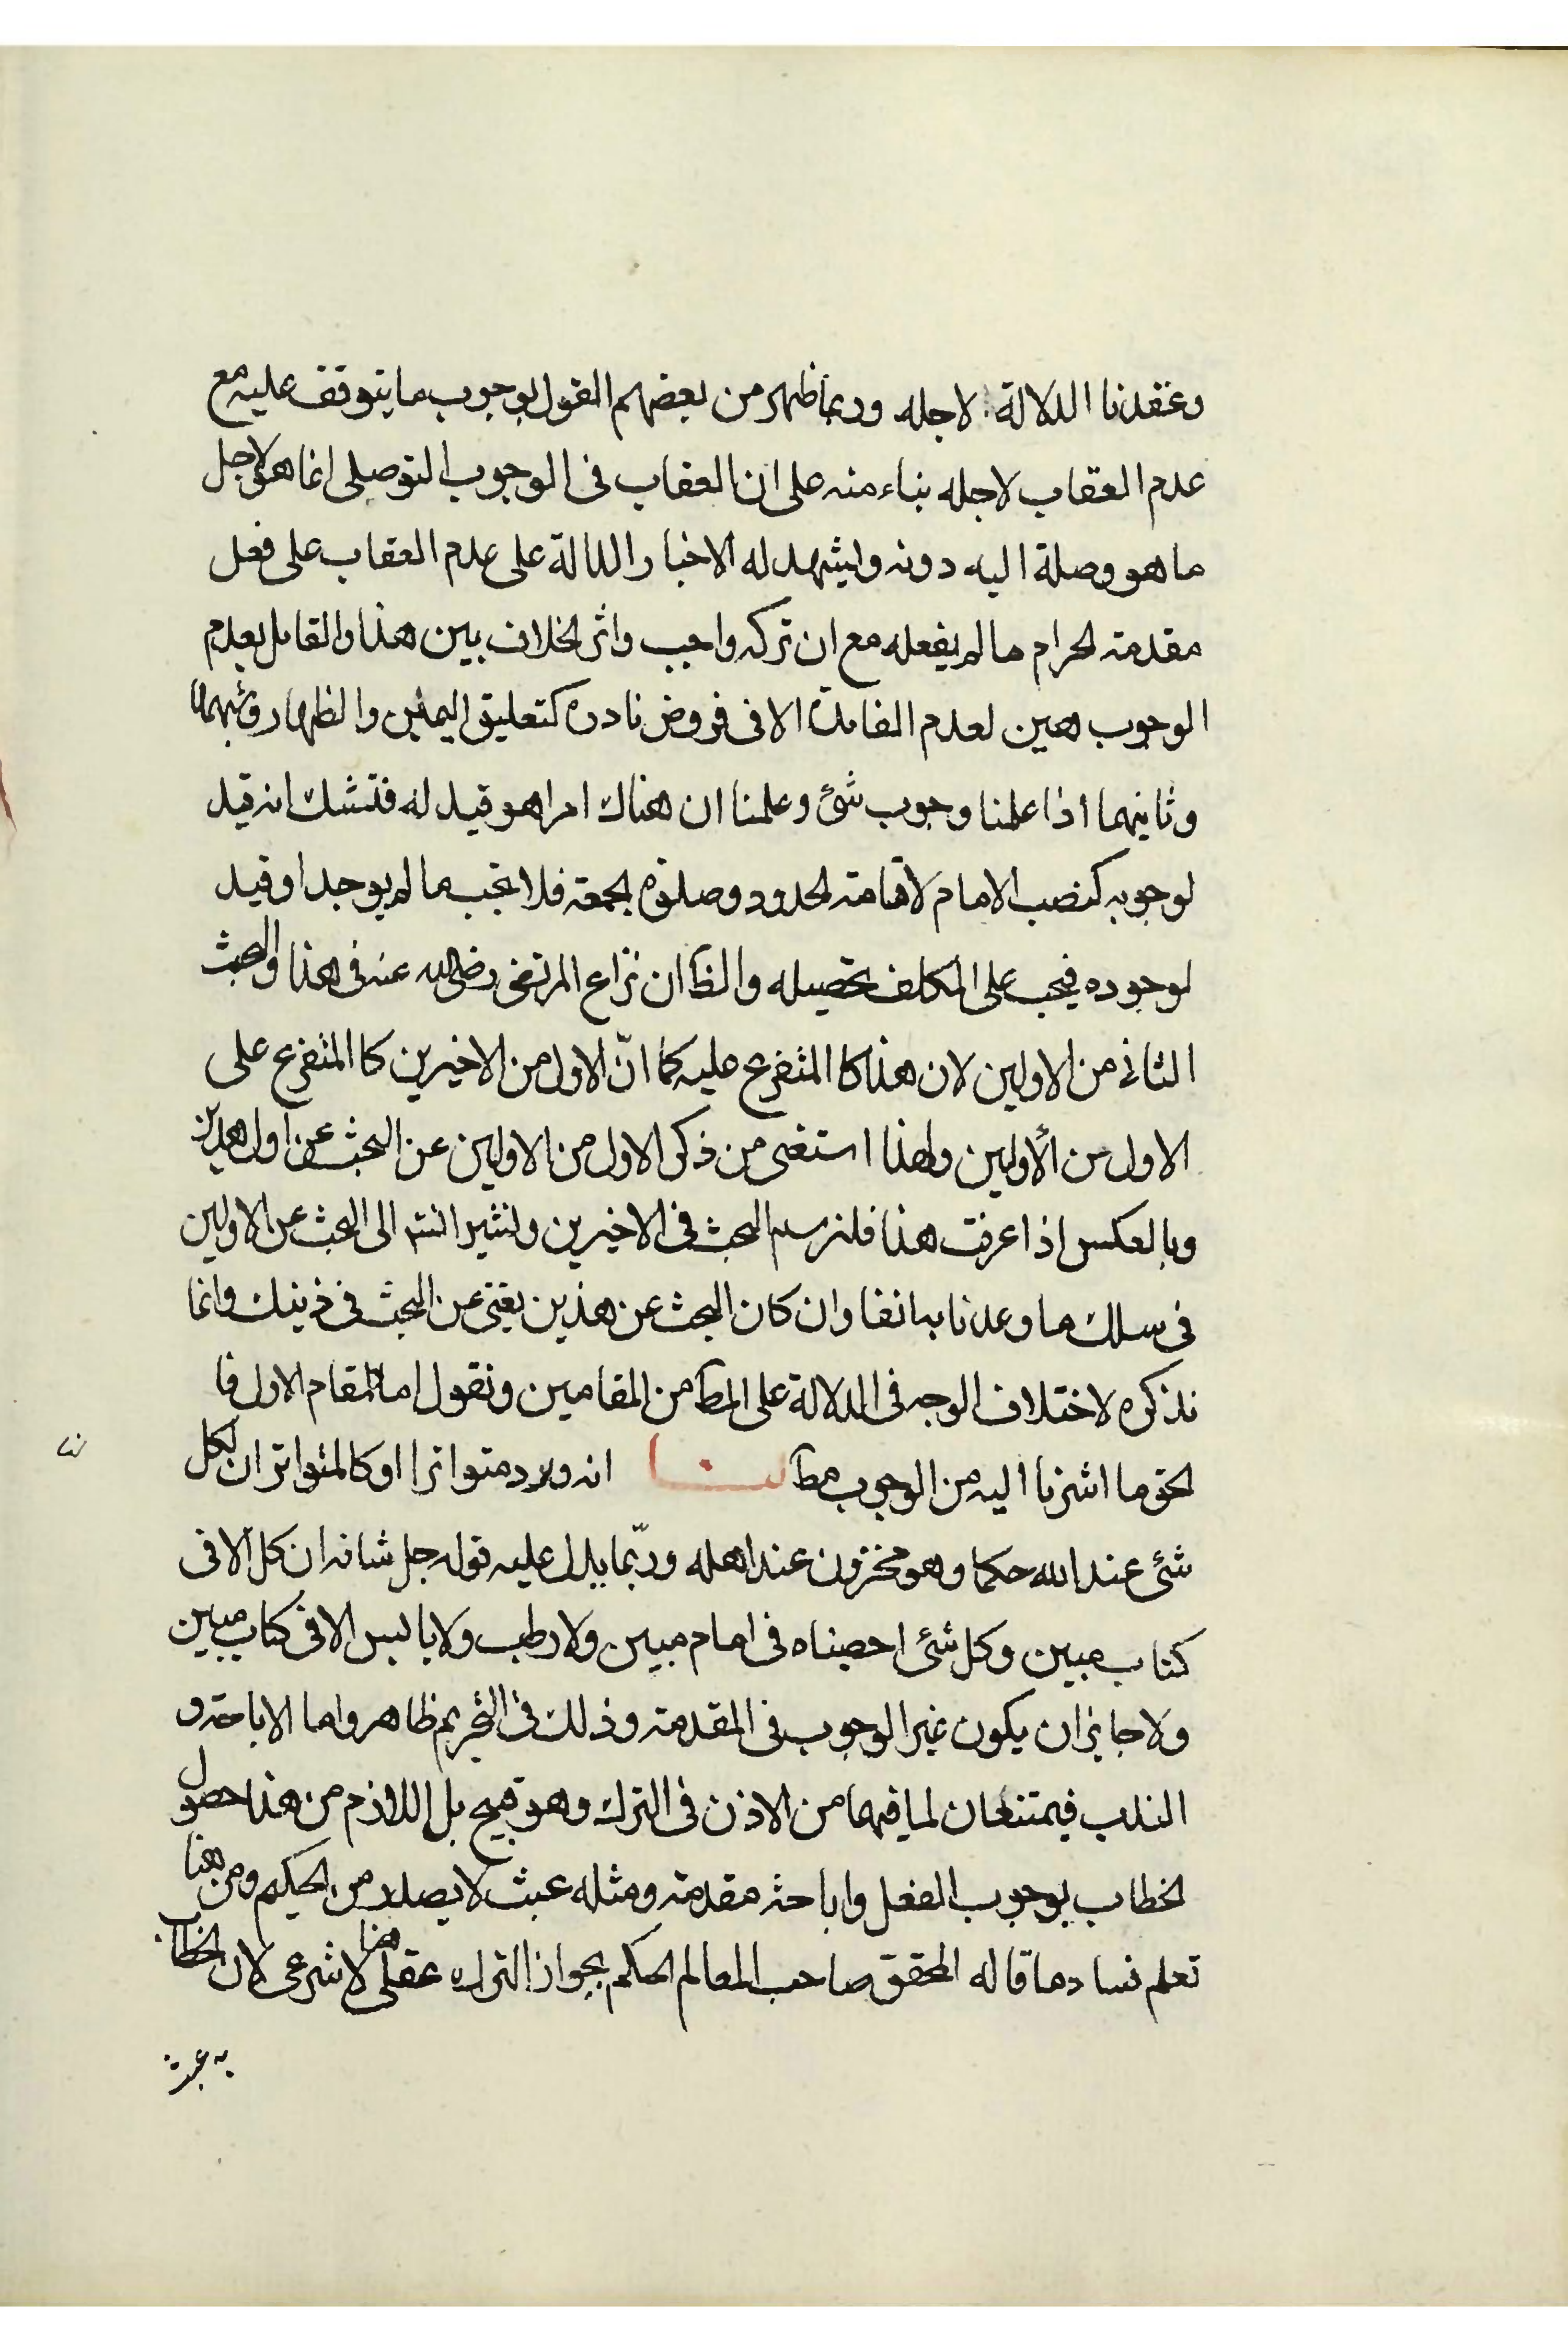 وعقدنا الدلالة لاجله وربما ظهر من بعضهم القول بوجوب ما يتوقف عليه مع
عدم العقاب لاجله بناء منه على ان العقاب فى الوجوب التوصلى انما هو لاجل
ما هو وصلة اليه دونه ويشهد له الاخبار الدالة على عدم العقاب على فعل
مقدمة الحرام ما لم يفعله مع ان تركه واجب واثر الخلاف بين هذا والقايل بعدم
الوجوب هين لعدم الفايدة الا فى فروض نادرة كتعليق اليمين والظهار وشبههما
وثانيهما اذا علمنا وجوب شئ وعلمنا ان هناك امرا هو قيد له فنشك انه قيد
لوجوبه كنصب الامام لاقامة الحدود وصلوة الجمعة فلا تجب ما لم يوجد او قيد
لوجوده فيجب على المكلف تحصيله والظ ان نزاع المرتضى رضى الله عنه فى هذا والبحث
الثانى من الاولين لان هذا كالمتفرع عليه كما انّ الاول من الاخيرين كالمتفرع على
الاول من الأولين ولهذا استغنى من ذكر الاول من الاولين عن البحث عن اول هذين
وبالعكس اذا عرفت هذا فلنرسم البحث فى الاخيرين ولنشير انشم الى البحث عن الاولين
فى سلك ما وعدنا به انفا وان كان البحث عن هذين يغنى عن البحث فى ذينك وانما
نذكره لاختلاف الوجه فى الدلالة على المط من المقامين ونقول اما المقام الاول فا
لحق ما اشرنا اليه من الوجوب مط لنا انه ورد متواترا او كالمتواتر ان لكل
شئ عند الله حكما وهو مخزون عند اهله وربّما يدل عليه قوله جل شانه ان كل الا فى
كتاب مبين وكل شئ احصيناه فى امام مبين ولا رطب ولا يابس الا فى كتاب مبين
ولا جايز ان يكون غير الوجوب فى المقدمة وذلك فى التحريم ظاهر واما الاباحة و
الندب فيمتنعان لما فيهما من الاذن فى الترك وهو قبيح بل اللازم من هذا حصول
الخطاب بوجوب الفعل واباحة مقدمة ومثله عبث لا يصدر من الحكيم ومن هنا
تعلم فساد ما قاله المحقق صاحب المعالم الحكم بجواز الترك هنا عقلى لا شرعى لان الخطاب
به عبث